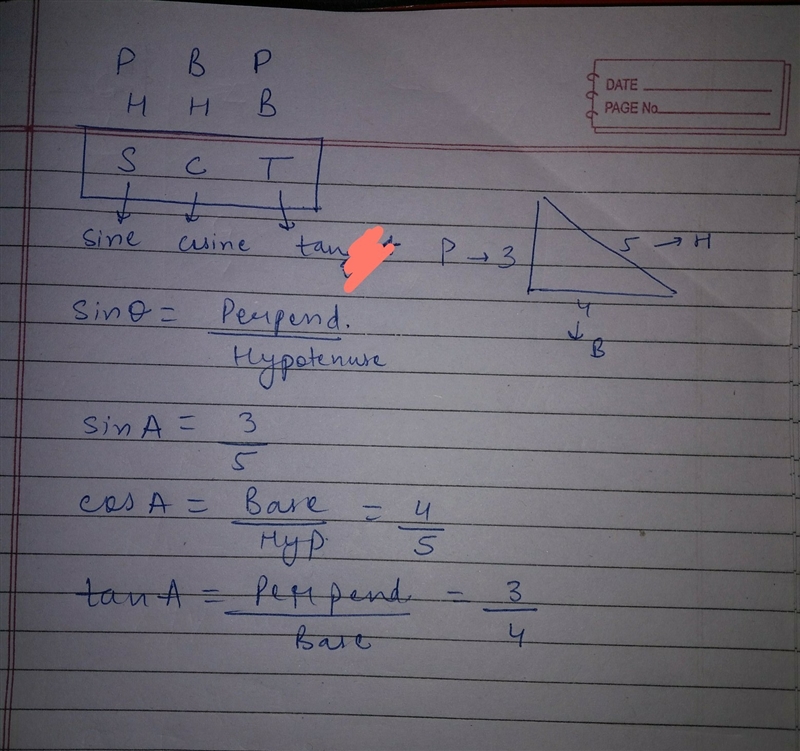 P B P
H H B
DATE
PAGE No.
S C T
sine cosine tan
P → 3
5 → H
4
↓
B
sinθ = Perpend.
Hypotenuse
sin A = 3
5
cos A = Base = 4
Hyp. 5
tan A = Perpend = 3
Base 4